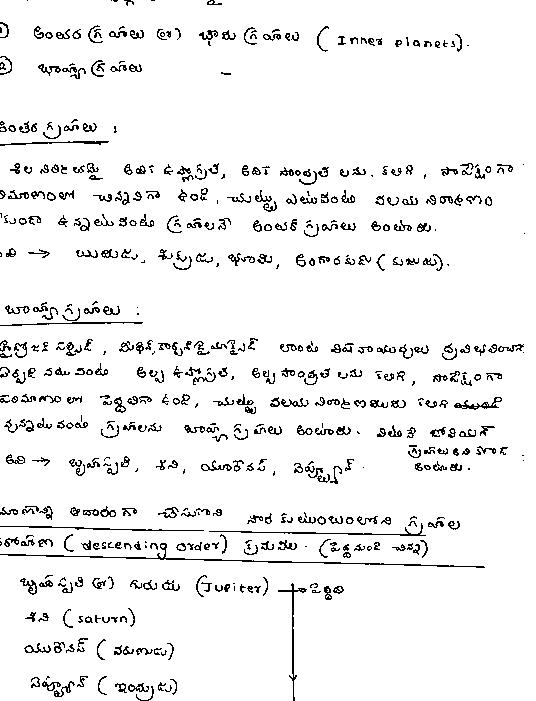 ① అంతర గ్రహాలు (లేదా) భౌమ గ్రహాలు ( Inner planets).
② బాహ్య గ్రహాలు –
అంతర గ్రహాలు :
శిల నిర్మితమై అధిక ఉష్ణోగ్రత, అధిక సాంద్రత లను కలిగి, సాపేక్షం గా
పరిమాణంలో చిన్నవిగా ఉండి, చుట్టూ ఎటువంటి వలయ నిర్మాణం
లేకుండా ఉన్నటువంటి గ్రహాలనే అంతర గ్రహాలు అంటారు.
అవి → బుధుడు, శుక్రుడు, భూమి, అంగారకుడు ( కుజుడు).
బాహ్య గ్రహాలు :
హైడ్రోజన్ సల్ఫైడ్, మీథేన్, కార్బన్ డై ఆక్సైడ్ లాంటి విష వాయువులు ద్రవీభవించి
ఏర్పడి నటువంటి అల్ప ఉష్ణోగ్రత, అల్ప సాంద్రత లను కలిగి, సాపేక్షం గా
పరిమాణం లో పెద్దవిగా ఉండి, చుట్టూ వలయ నిర్మాణములు కలిగి
వున్నటువంటి గ్రహాలను బాహ్య గ్రహాలు అంటారు. వీటినే జోవియన్
గ్రహాలు అని కూడా
అవి → బృహస్పతి, శని, యురేనస్, నెప్ట్యూన్. అంటారు.
పరిమాణాన్ని ఆధారం గా చేసుకొని సౌర కుటుంబంలోని గ్రహాల
అవరోహణ ( descending order) క్రమము. (పెద్దనుండి చిన్న)
బృహస్పతి (లేదా) గురుడు (Jupiter) → పెద్దది
శని ( saturn)
యురేనస్ ( వరుణుడు)
నెప్ట్యూన్ ( ఇంద్రుడు)